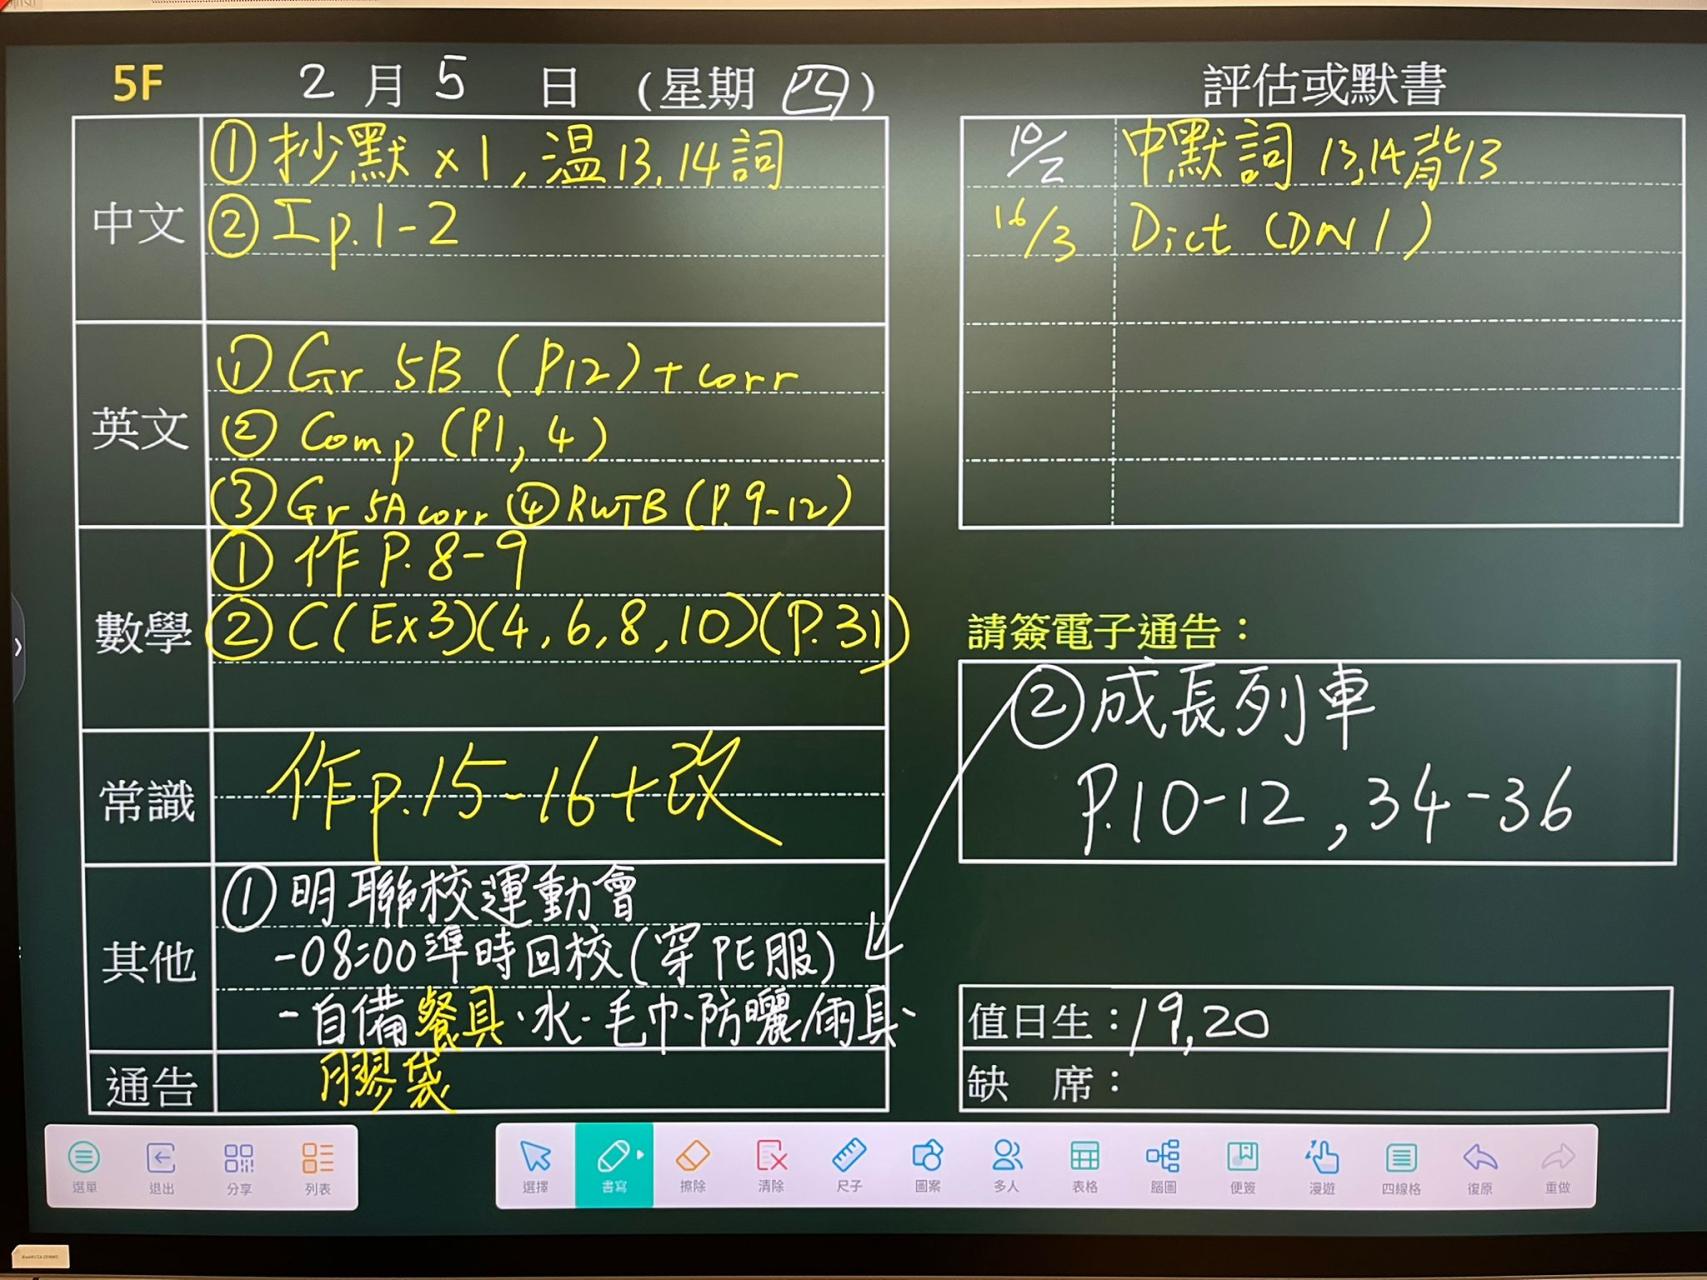 5F 2月5日(星期四)
中文
①抄默x1,溫13,14詞
②工p.1-2
英文
①Gr 5B (P12)+corr
②Comp (P1,4)
③Gr 5A corr ④RWTB (P.9-12)
數學
①作P.8-9
②C(Ex3)(4,6,8,10)(P.31)
常識
作p.15-16+改
其他
①明聯校運動會
-08:00準時回校(穿PE服)
-自備餐具、水、毛巾、防曬/雨具、
膠袋
通告
評估或默書
10/2 中默詞13,14背13
16/3 Dict (DN1)
請簽電子通告：
②成長列車
P.10-12,34-36
值日生：19,20
缺席：
選單 退出 分享 列表
選擇 書寫 擦除 清除 尺子 圖案 多人 表格 腦圖 便簽 漫遊 四線格 復原 重做